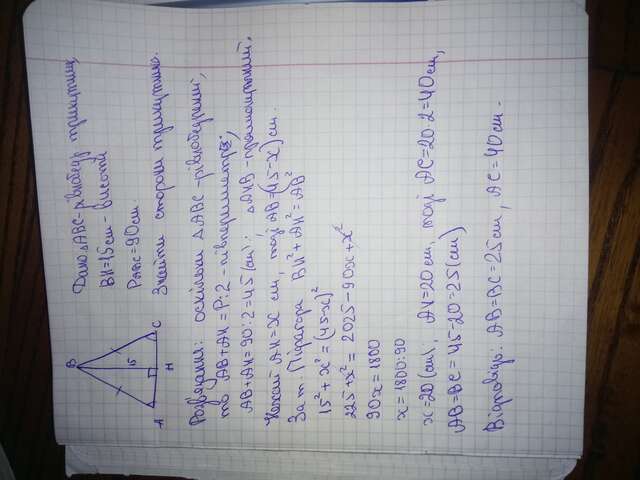 Дано: △ABC-рівнобедр. трикутник
BH=15см - висота
P_ABC=90см.
Знайти сторони трикутника.
B
15
A H C
Розв'язання: оскільки △ABC -рівнобедрений,
то AB+AH=P:2 -півпериметр,
AB+AH=90:2=45(см). △AHB-прямокутний,
Нехай AH=x см, тоді AB=(45-x)см.
За т Піфагора BH²+AH²=AB²
15²+x²=(45-x)²
225+x²=2025-90x+x²
90x=1800
x=1800:90
x=20(см), AH=20см, тоді AC=20·2=40см,
AB=BC=45-20=25(см)
Відповідь: AB=BC=25см, AC=40см.